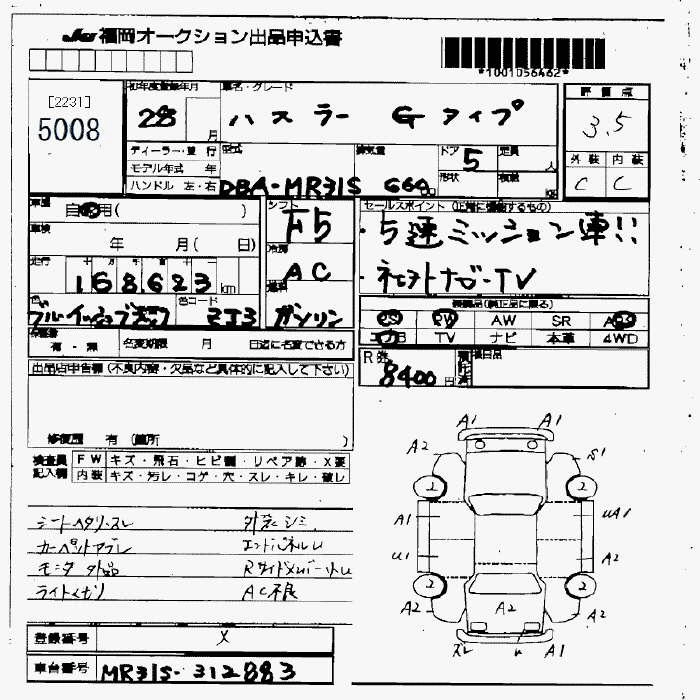 JAS 福岡オークション出品申込書
*1001056462*
[2231]
5008
初年度登録年月
28 月
車名・グレード
ハスラー Gタイプ
評価点
3.5
外装 内装
C C
ディーラー・並行
モデル年式 年
ハンドル 左・右
型式
DBA-MR31S
排気量
660 cc
ドア 5
形状
定員 人
積載 kg
車歴 自家用( )
車検 年 月( 日)
走行 十 万 千 百 十 一
168,623 km
色
ブルーイッシュブラック
色コード
ZJ3
シフト
F5
冷房
AC
燃料
ガソリン
セールスポイント (正確に記載するもの)
・5速ミッション車!!
・社外ナビ-TV
装備品(純正品に限る)
PS PW AW SR ABS
エアB TV ナビ 本革 4WD
有・無
名変期限 月 日迄に名変できる方
R券
8400円
出品店申告欄(不良内容・欠品など具体的に記入して下さい)
修復歴 有 (箇所 )
検査員記入欄
FW キズ・飛石・ヒビ割・リペア跡・X要
内装 キズ・汚レ・コゲ・穴・スレ・キレ・破レ
シートヘタリ・スレ 外装シミ
カーペットヤブレ エンドパネルU
モニタ外品 RサイドメンバーU
ライトメガリ AC不良
登録番号 X
車台番号 MR31S-312883
A1 A1
A2 S1
2 2
A1 UA1
U1 A2
2 2
A2 A2 A2
スレ U A1